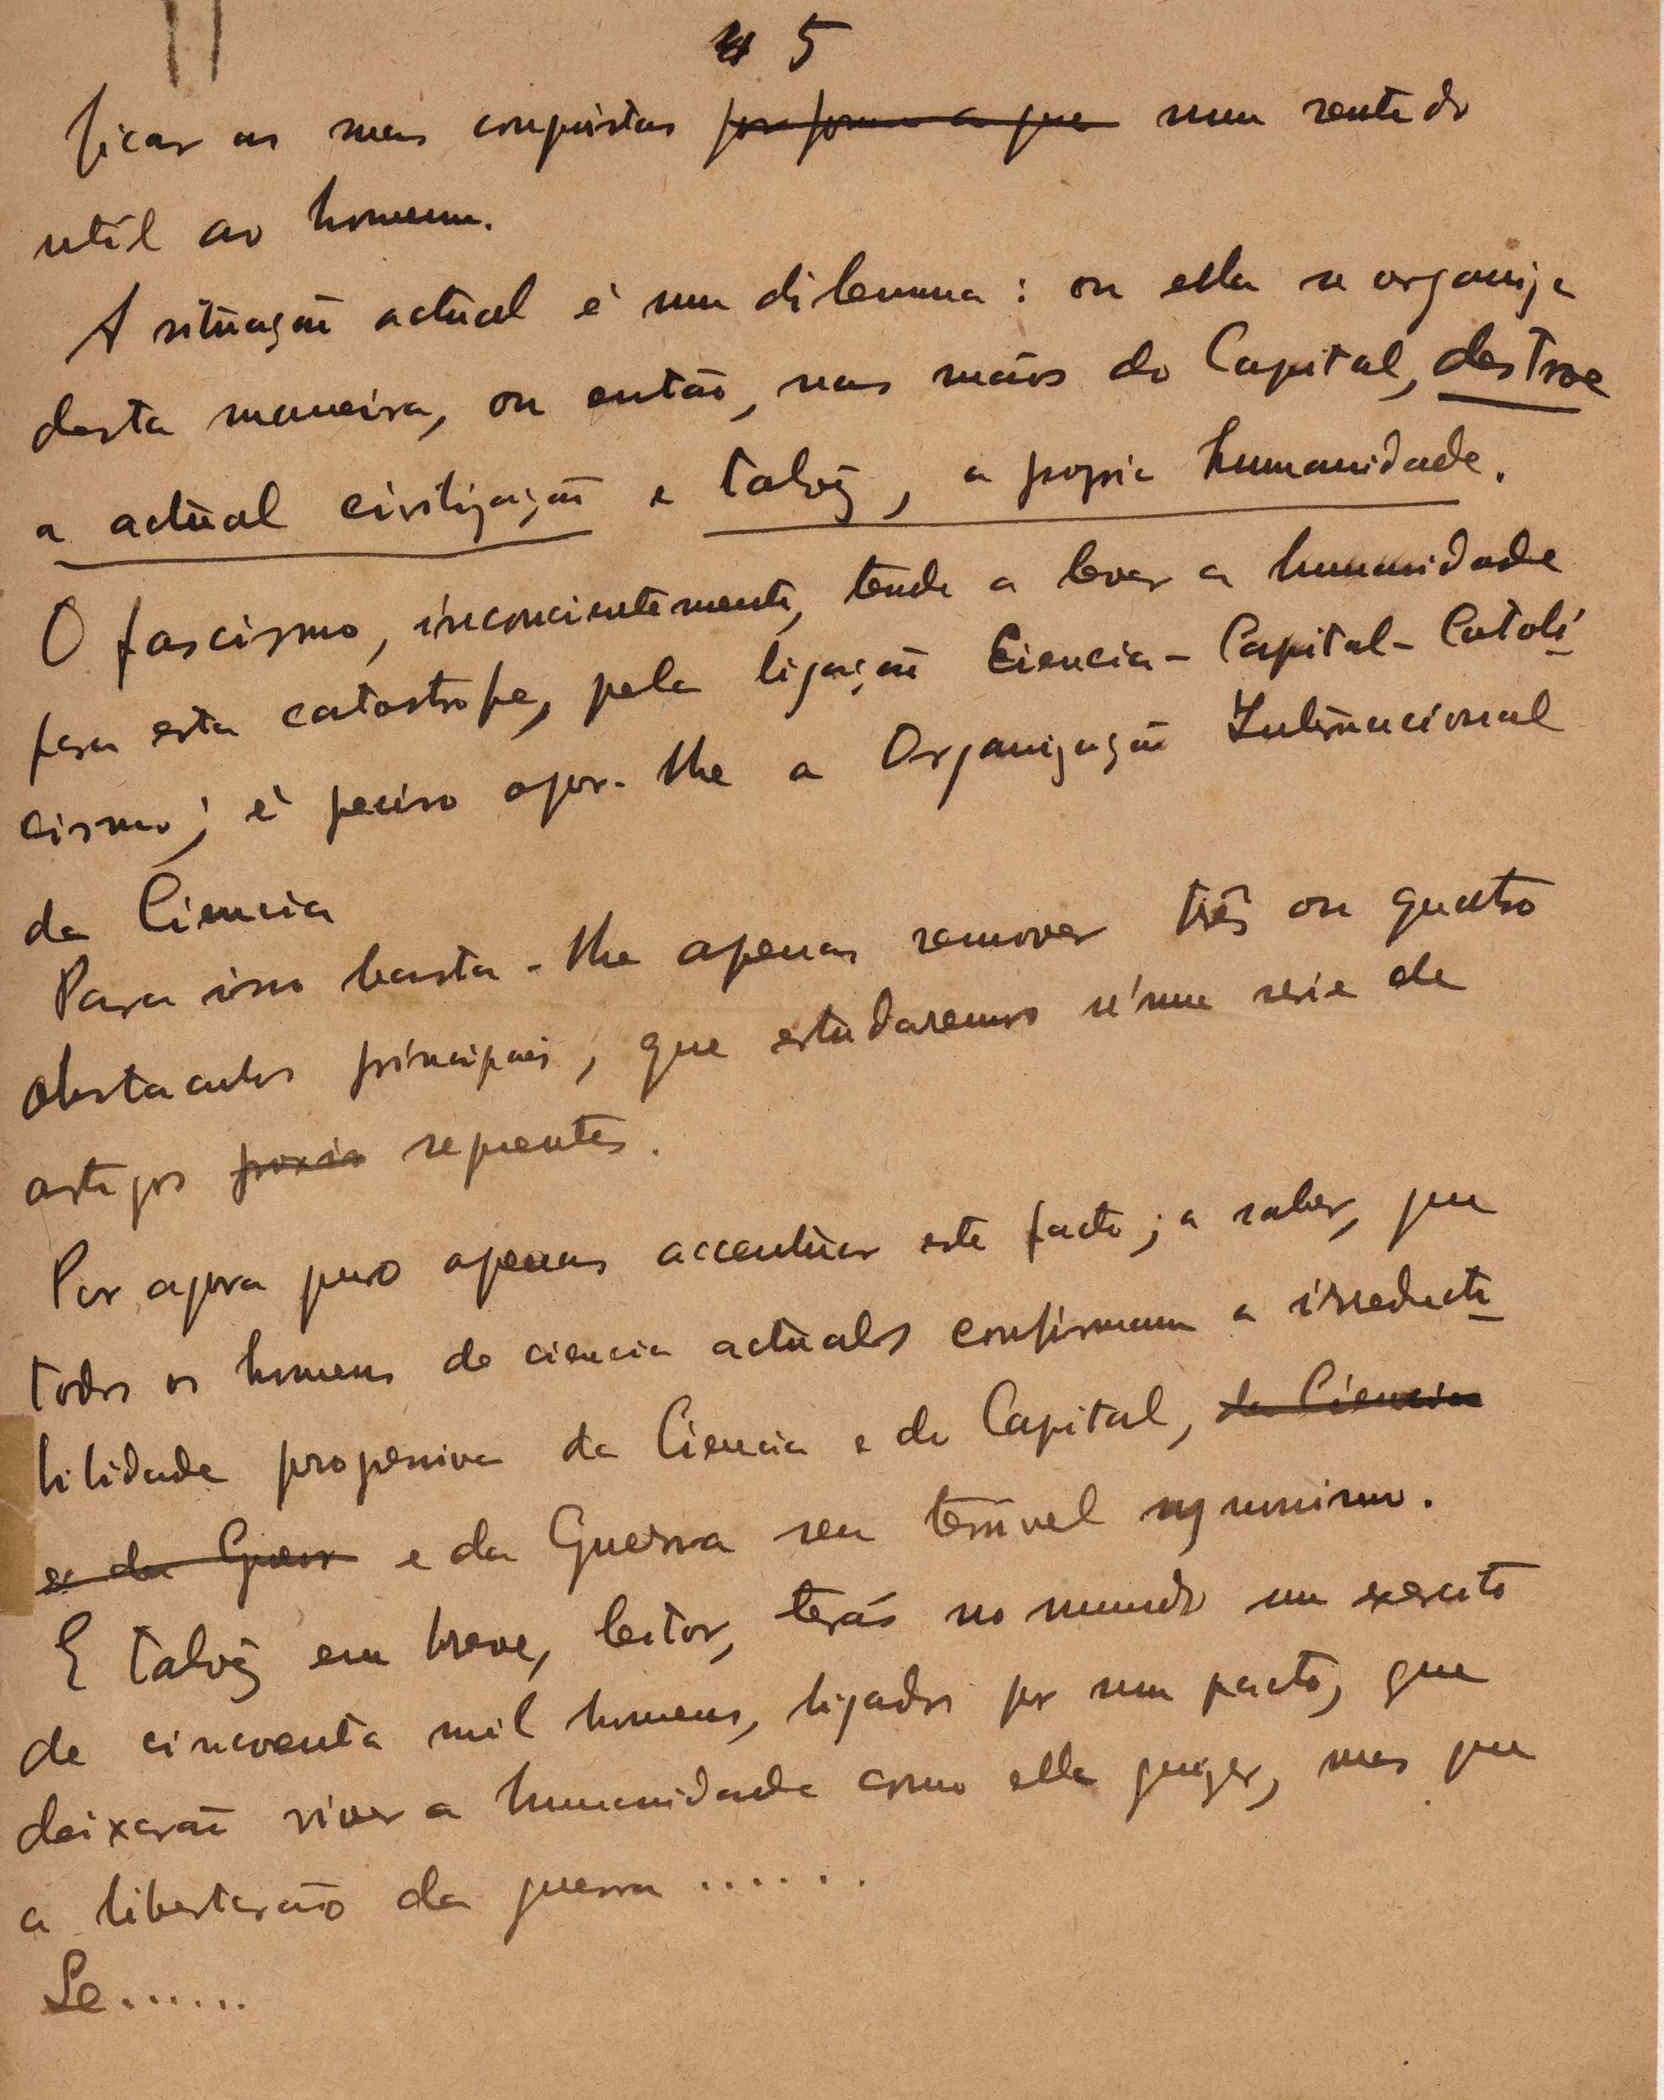 4 5
ficar as suas conquistas por forma a que num sentido
util ao homem.
A situação actual é um dilemma : ou ella se organiza
desta maneira, ou então, nas mãos do Capital, destroe
a actual civilização e talvez, a propria humanidade.
O fascismo, inconcientemente, tende a levar a humanidade
para esta catastrofe, pela ligação Ciencia - Capital - Catoli
cismo ; é preciso opor-lhe a Organização Internacional
da Ciencia
Para isso basta-lhe apenas remover três ou quatro
obstaculos principais, que estudaremos n'uma serie de
artigos proxi seguentes.
Por agora quero apenas accentuar este facto ; a saber, que
todos os homens de ciencia actuaes confirmam a irreducti
bilidade progressiva da Ciencia e do Capital, da Ciencia
e da Guerr e da Guerra seu terrivel synonimo.
E talvez em breve, leitor, terás no mundo um exercito
de cincoenta mil homens, ligados por um pacto, que
deixarão viver a humanidade como ella quizer, mas que
a libertarão da guerra ......
Se ......